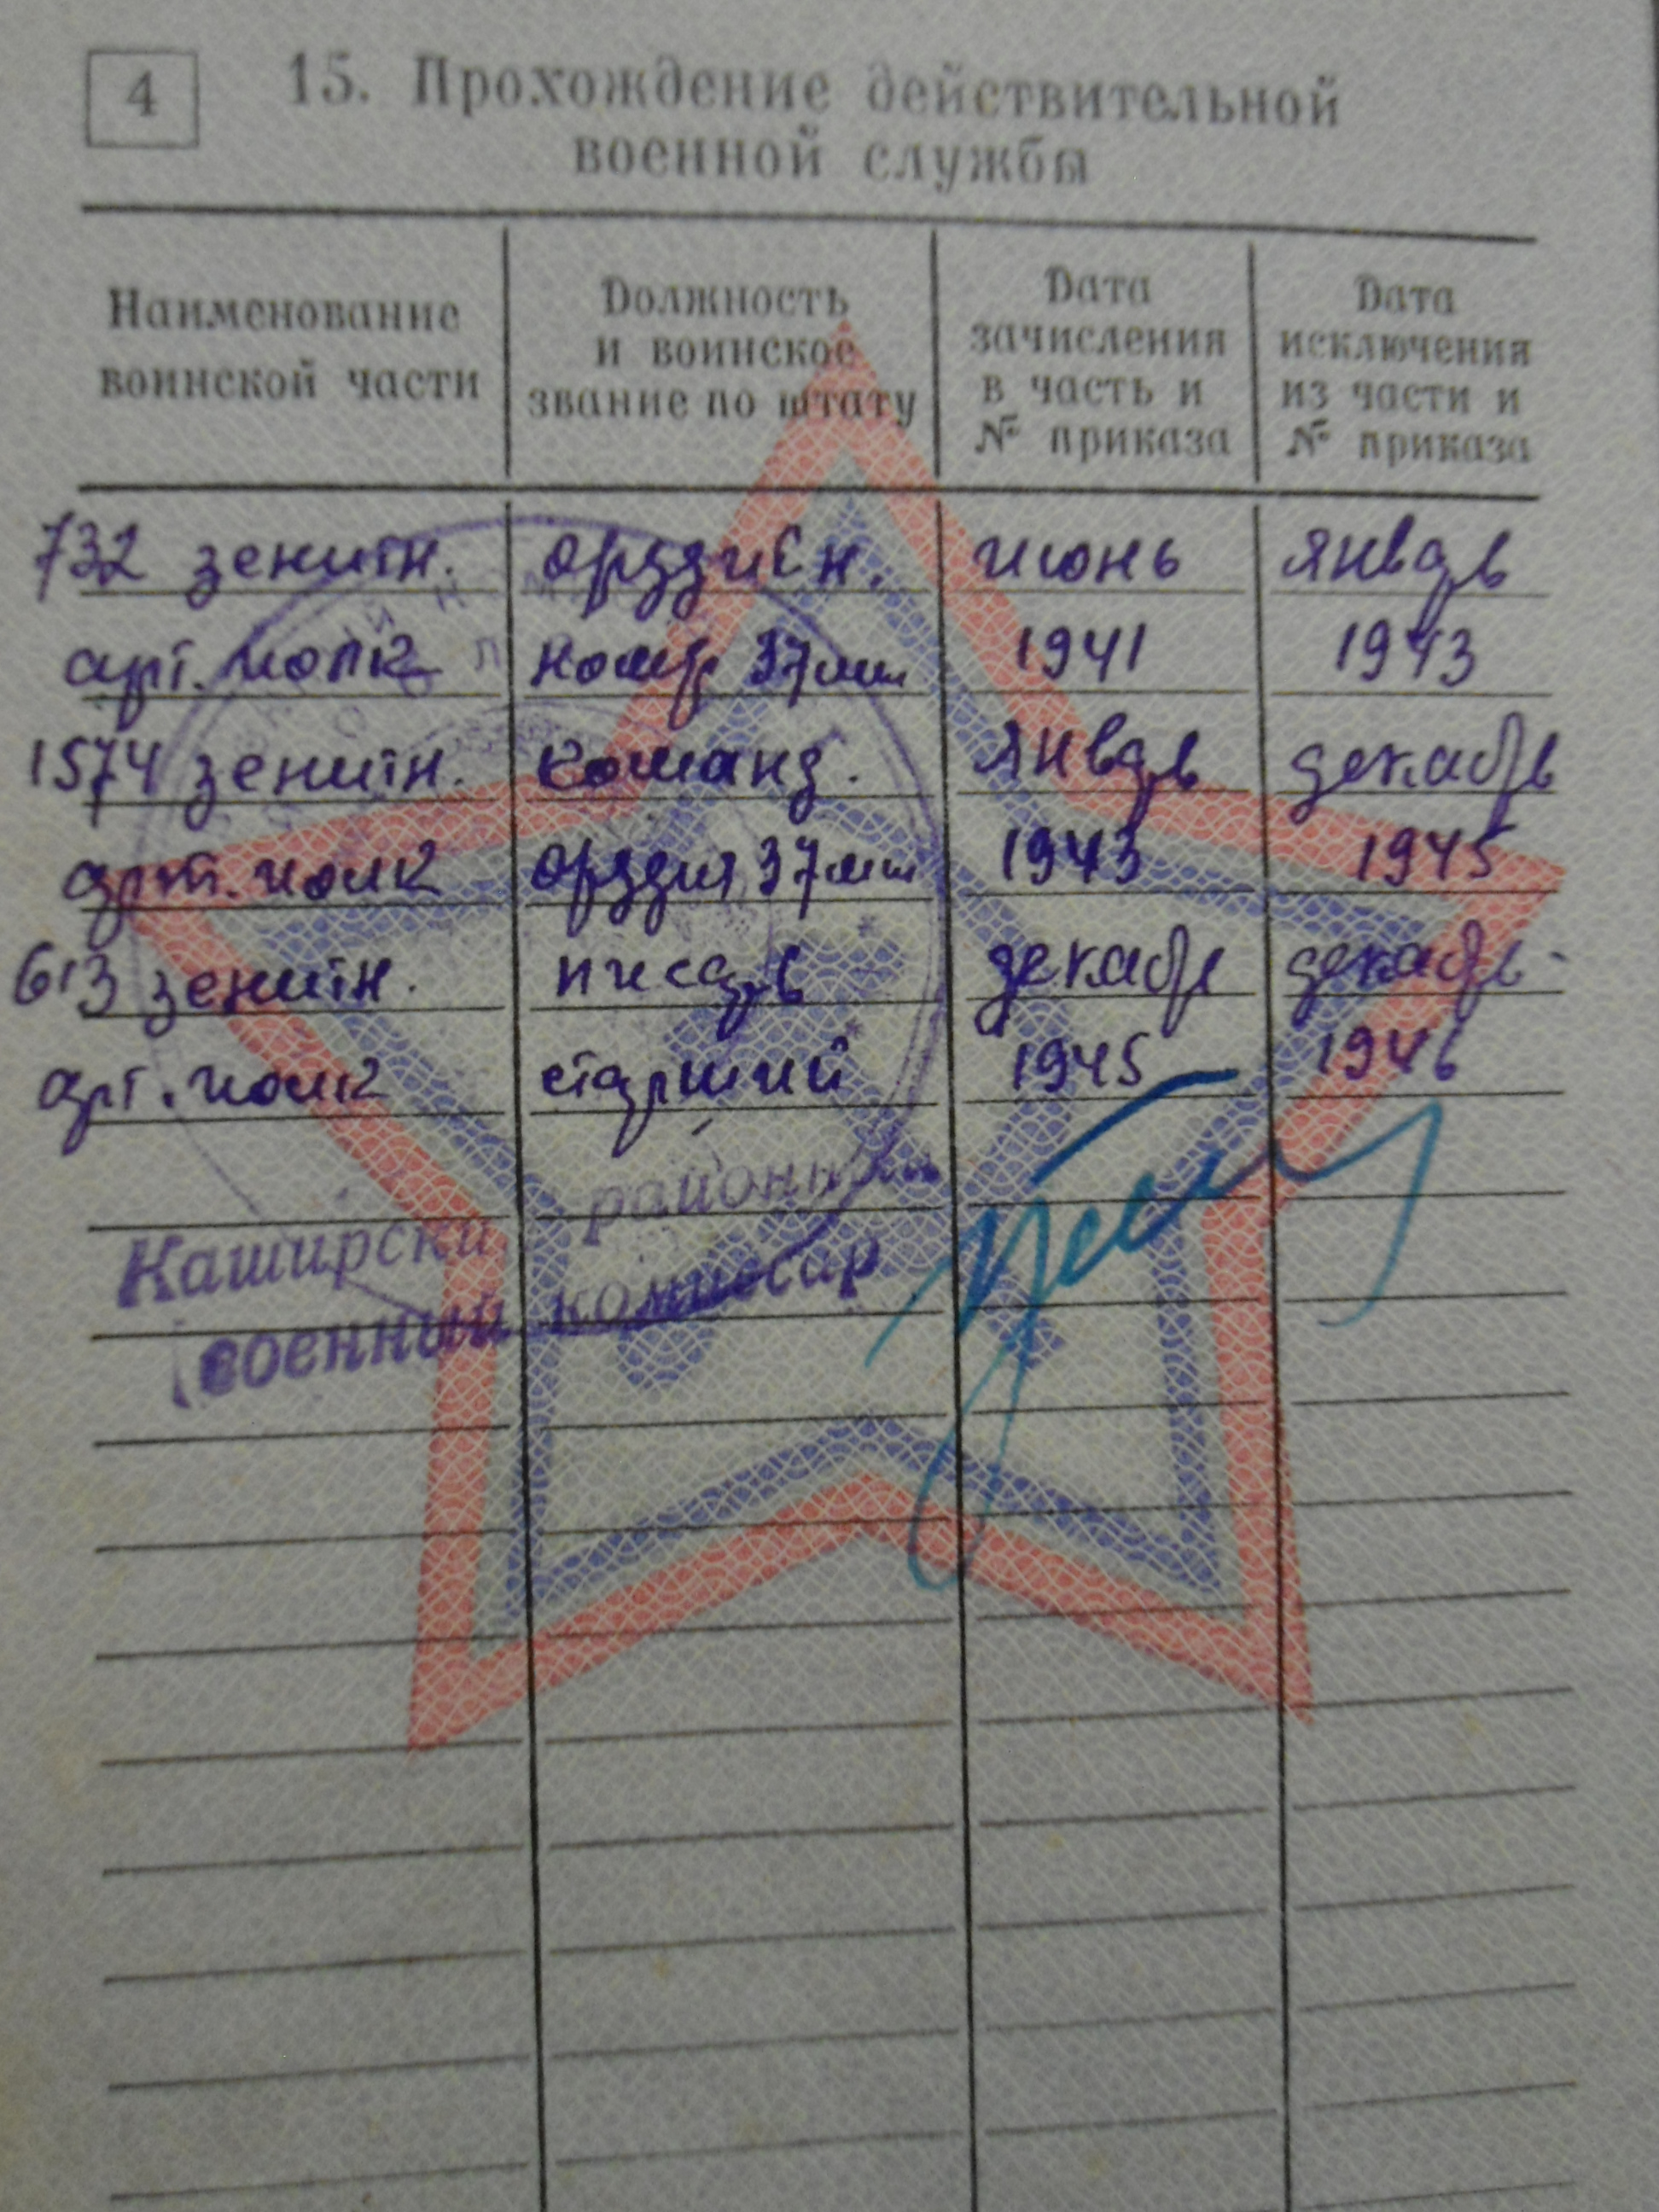 4
15. Прохождение действительной
военной службы
Наименование
воинской части
Должность
и воинское
звание по штату
Дата
зачисления
в часть и
№ приказа
Дата
исключения
из части и
№ приказа
732 зенитн. орудийн. июнь январь
арт. полк номер 37мм 1941 1943
1574 зенитн. команд. январь декабрь
арт. полк орудия 37мм 1943 1945
613 зенитн. писарь декабрь декабрь
арт. полк старший 1945 1946
районный
Каширский
военный комиссар